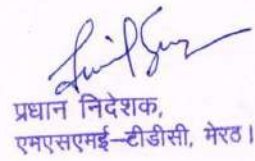 प्रधान निदेशक,
एमएसएमई–टीडीसी, मेरठ।